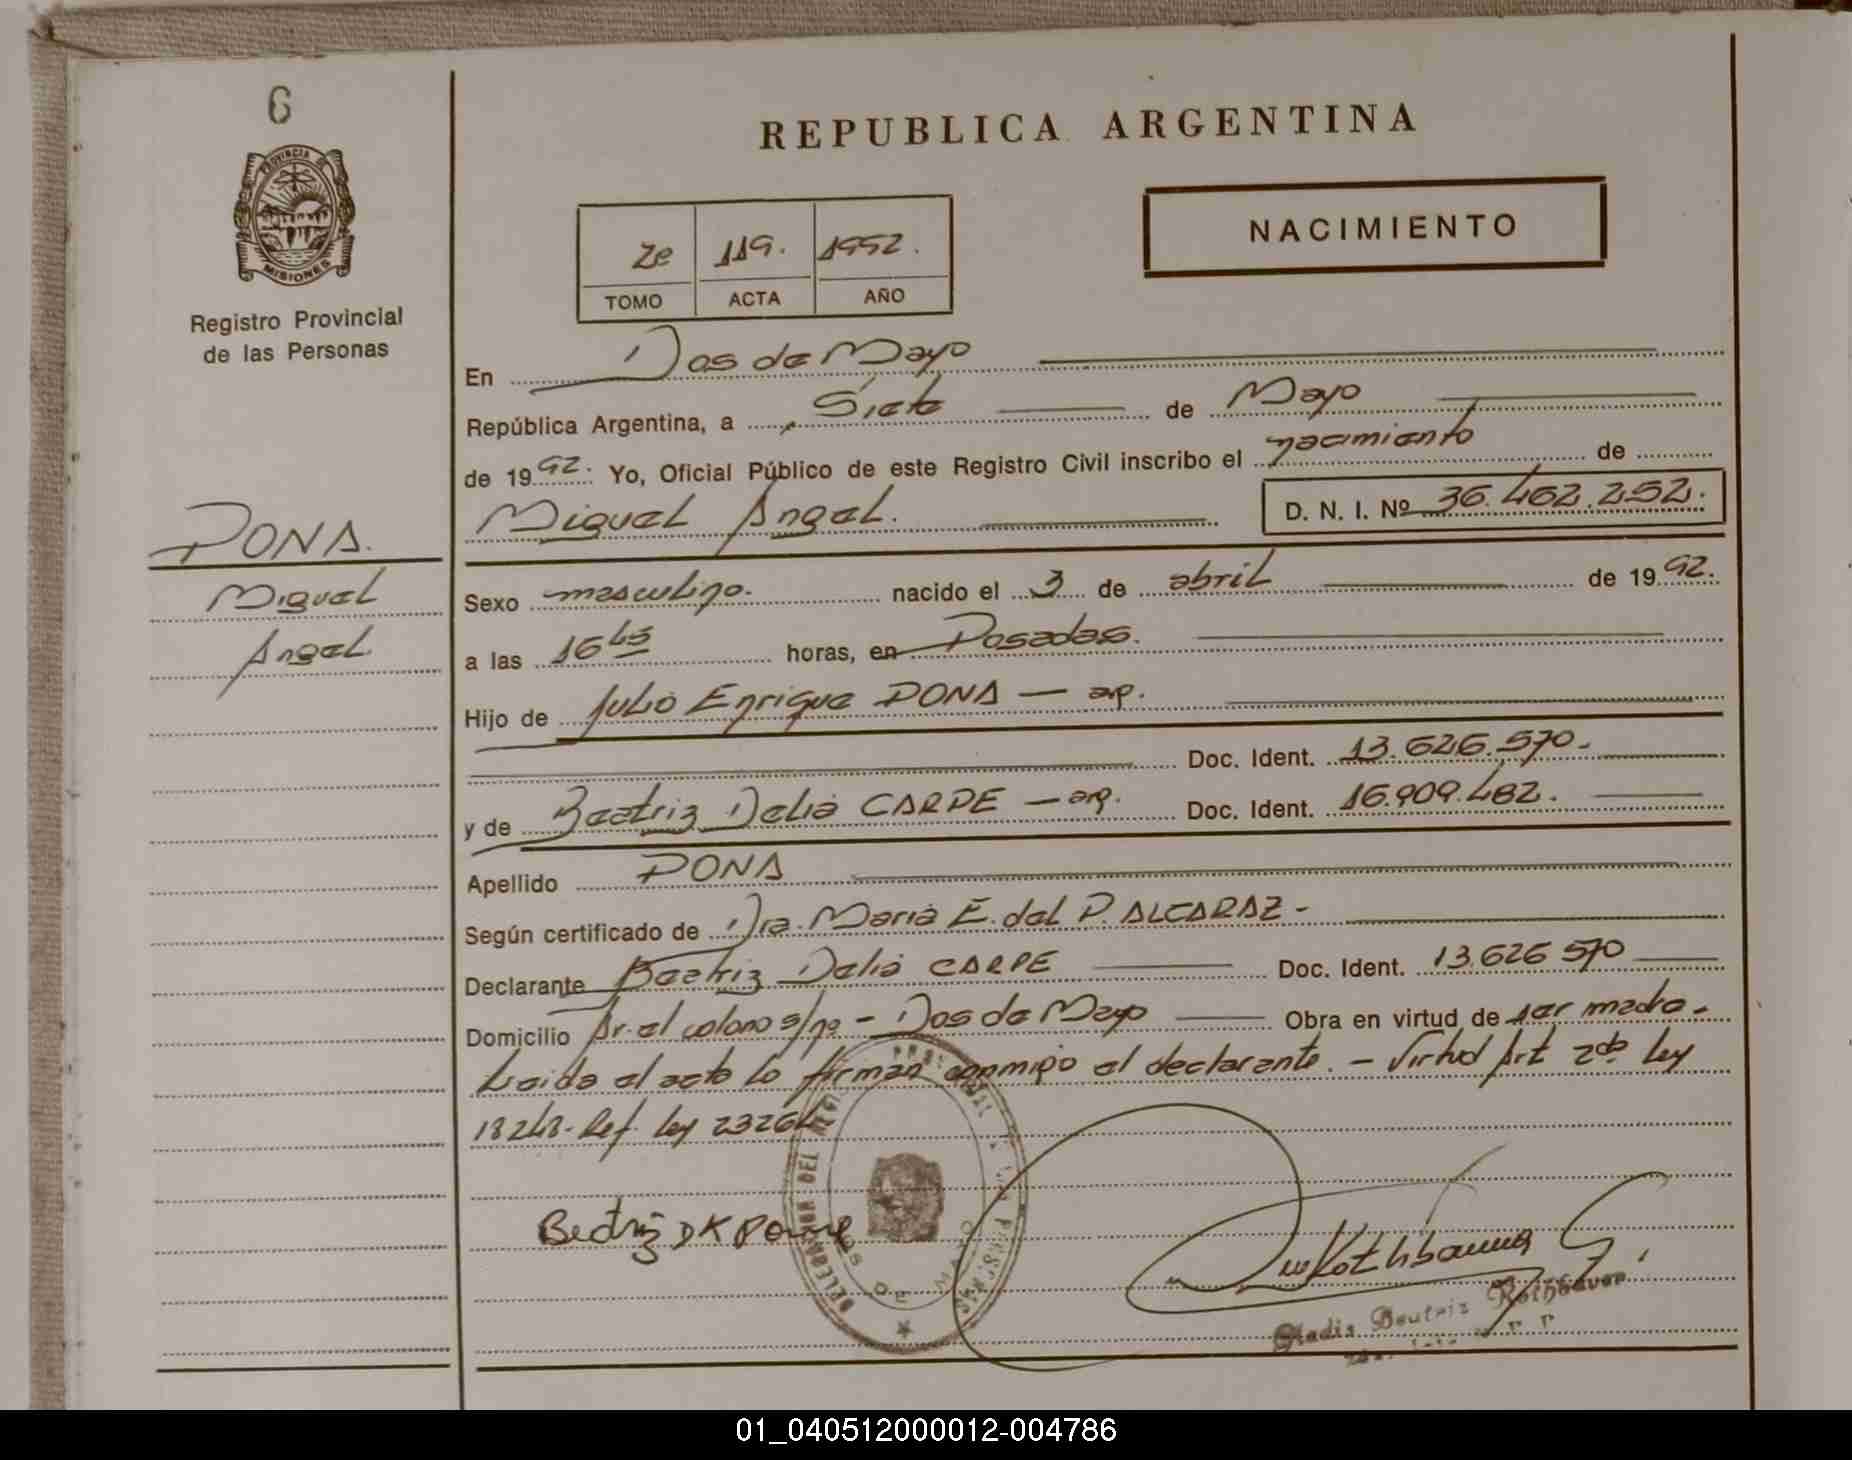 6
PROVINCIA DE
MISIONES
Registro Provincial
de las Personas
PONA.
Miguel
Angel.
REPUBLICA ARGENTINA
NACIMIENTO
2e 119. 1992.
TOMO ACTA AÑO
En Dos de Mayo
República Argentina, a Siete de Mayo
de 1992. Yo, Oficial Público de este Registro Civil inscribo el nacimiento de
Miguel Angel. D. N. I. Nº 36.462.252.
Sexo masculino. nacido el 3 de abril de 1992.
a las 16 horas, en Posadas.
Hijo de Julio Enrique PONA — ar.
Doc. Ident. 13.626.570.
y de Beatriz Delia CARPE — ar. Doc. Ident. 16.909.482.
Apellido PONA
Según certificado de Dra. Maria E. del P. ALCARAZ -
Declarante Beatriz Delia CARPE Doc. Ident. 13.626 570
Domicilio Ar. el colono s/nº - Dos de Mayo Obra en virtud de ser madre.
Leida el acta lo firman conmigo el declarante. - Virtud Art 2do Ley
18248 - Ref. Ley 23264
Beatriz D K Pona
DEL REGISTRO PROVINCIAL DE LAS PERSONAS
DOS DE MAYO
Gladis Beatriz Rothbauer
01_040512000012-004786